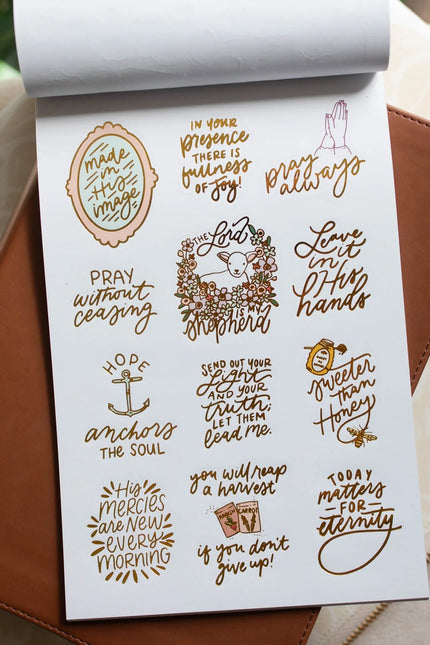 made
in
His
image
IN YOUR
presence
THERE IS
fullness
OF Joy!
pray
always
PRAY
without
ceasing
THE Lord
IS MY
shepherd
Leave
it
in
His
hands
HOPE
anchors
THE SOUL
SEND OUT YOUR
Light
AND YOUR
truth;
LET THEM
lead me.
sweeter
than
Honey
His
MERCIES
are NEW
every
MORNING
you will reap
a harvest
CARROT
if you don't
give up!
TODAY
matters
FOR
eternity